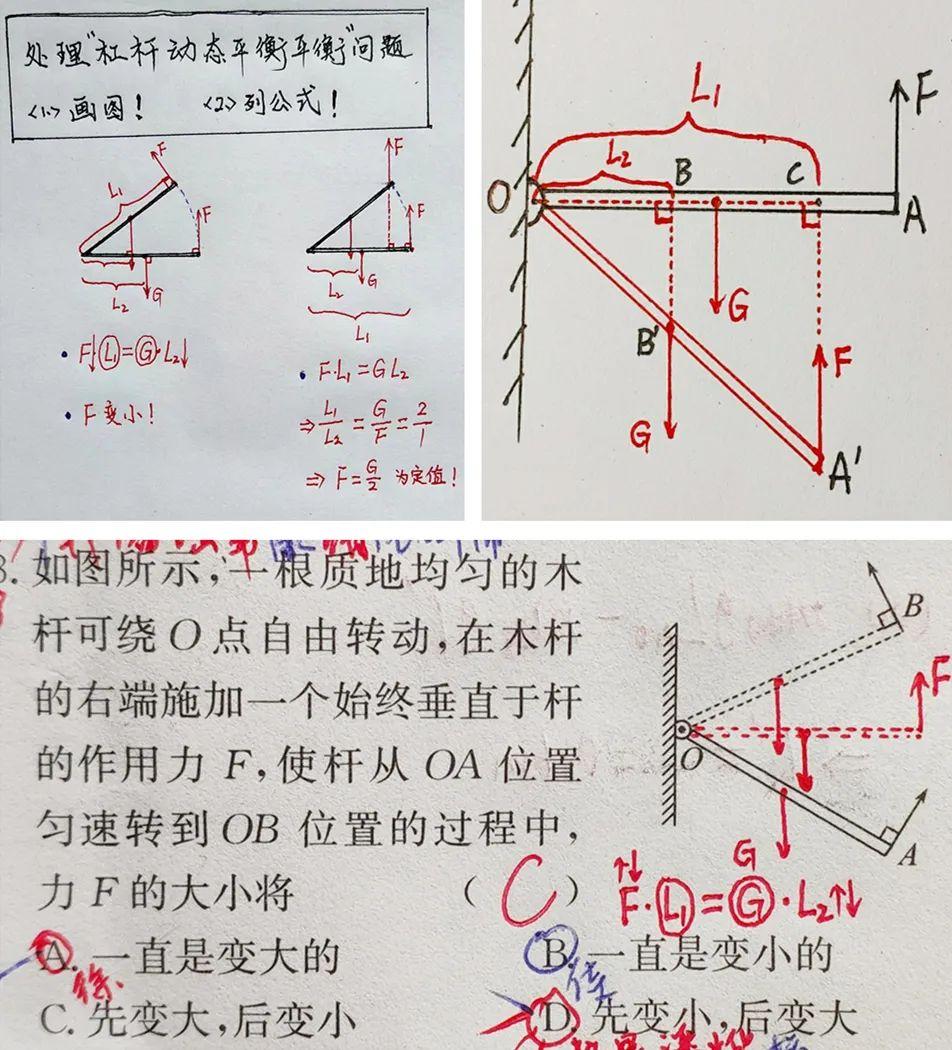 处理"杠杆动态平衡平衡"问题
<1>画图！ <2>列公式！
F
L₁
F
L₂
G
F↓·L₁=G·L₂↓
F变小！
F
F
L₂
G
L₁
F·L₁=GL₂
⇒L₁/L₂=G/F=2/1
⇒F=G/2 为定值！
L₁
F
L₂
B
C
O
A
G
B'
F
G
A'
8. 如图所示,一根质地均匀的木
杆可绕O点自由转动,在木杆
的右端施加一个始终垂直于杆
的作用力F,使杆从OA位置
匀速转到OB位置的过程中,
力F的大小将 ( C )
A. 一直是变大的 B. 一直是变小的
C. 先变大,后变小 D. 先变小,后变大
B
F
O
A
G
↑↓
F·L₁=G·L₂↑↓
徐